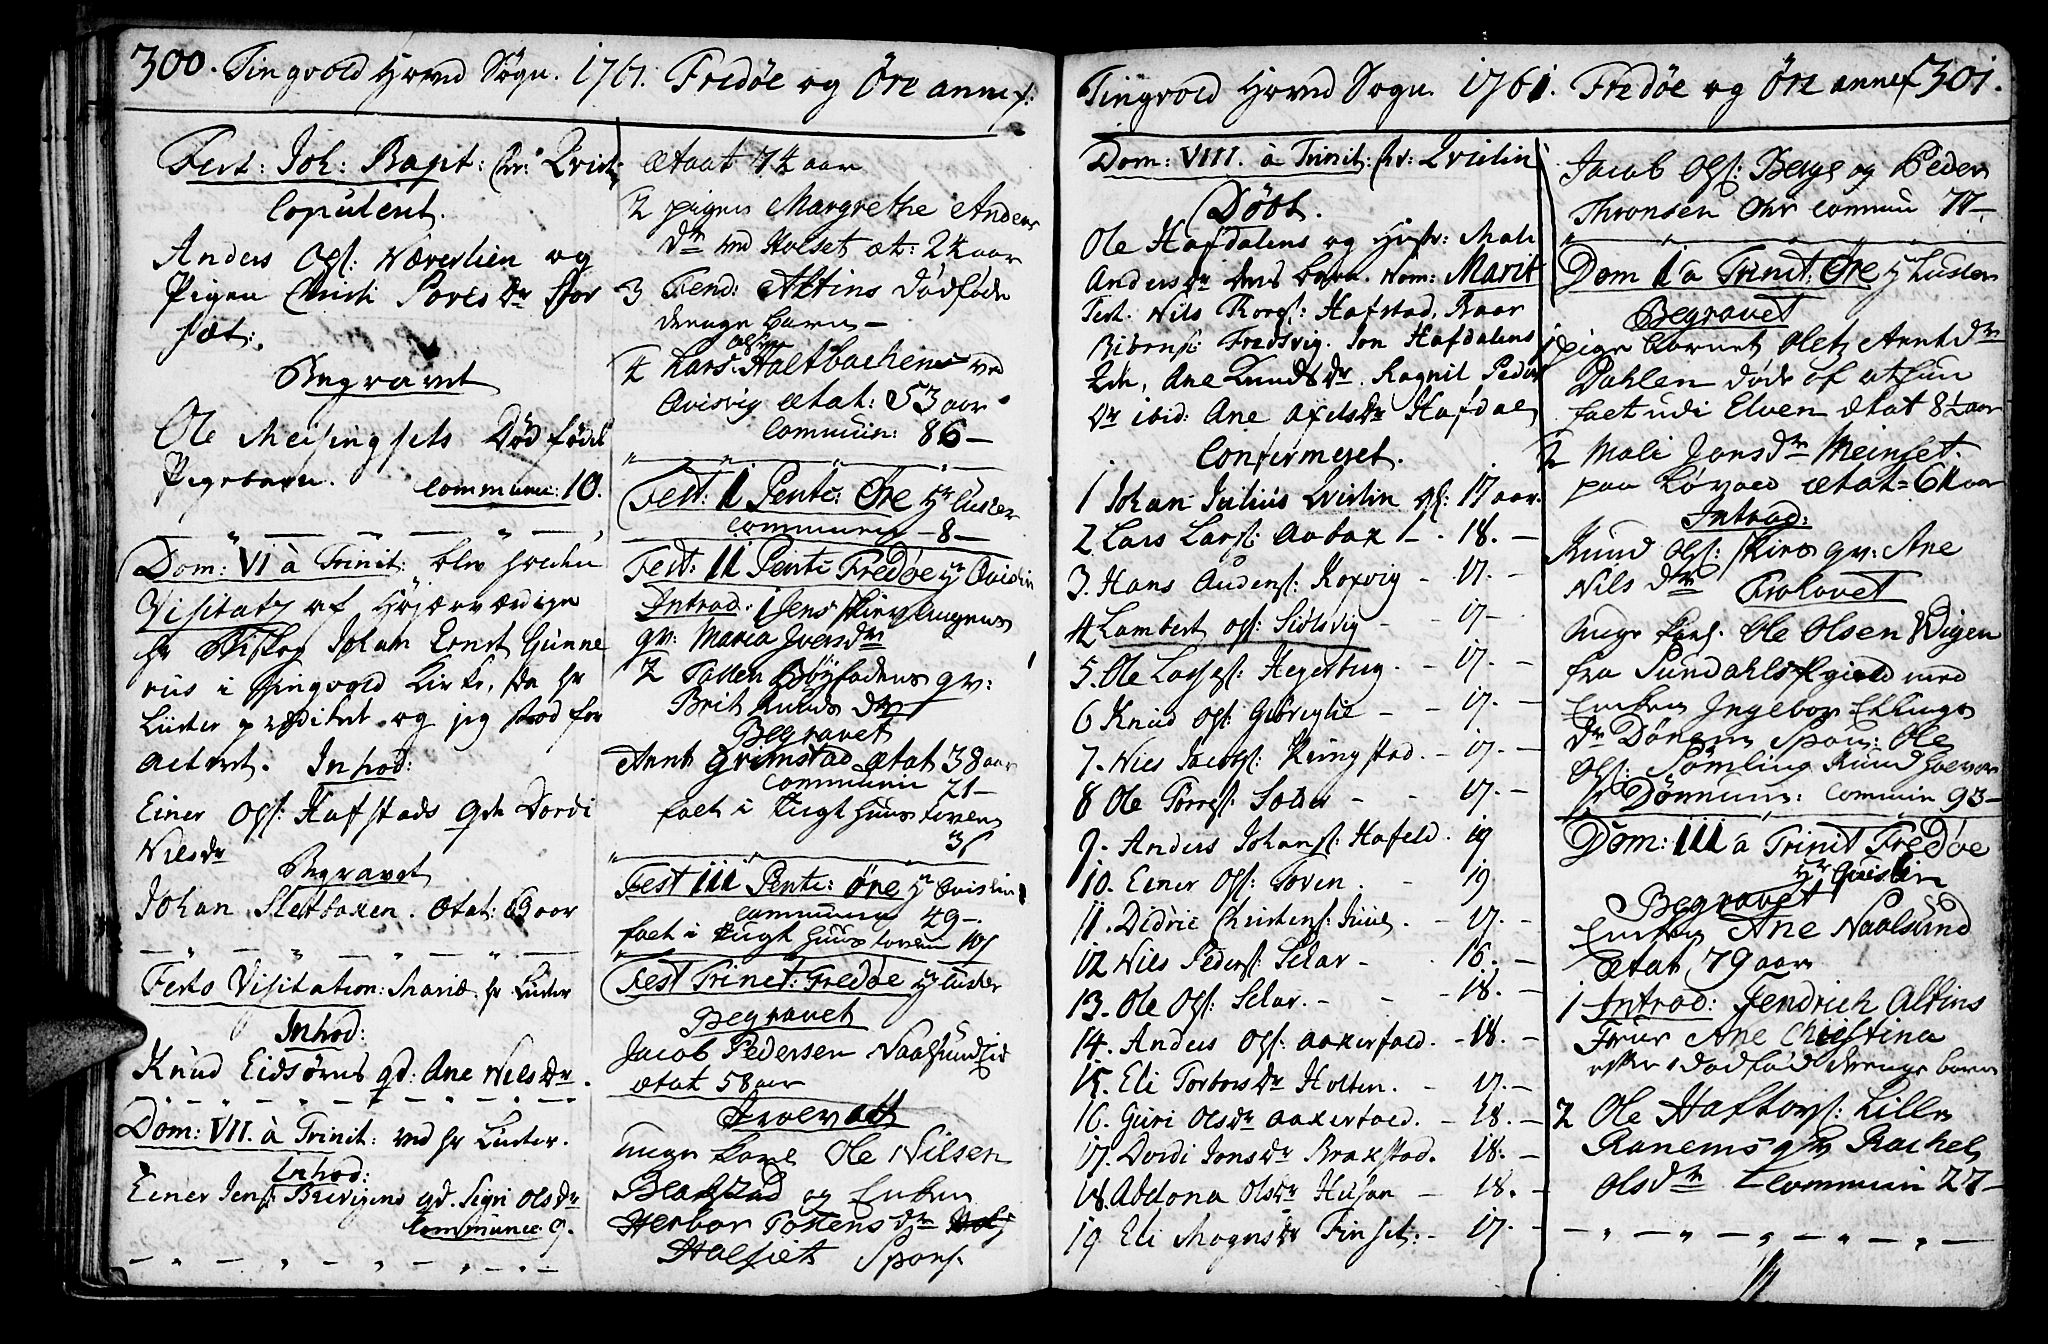 300. Tingvold Hoved Sogn. 1761. Fredøe og Öre annex:
Fest: Joh: Bapt: hr: Qvist:
Copulent.
Anders Ols: Næverlien og
Pigen Christi Povels Dr Stor
sæt:
Begravet
Ole Meisingsets Død fødd
Pigebarn. Commun: 10.
Dom: VI à Trinit: blev holden
Visitatz af Höjærværdige
hr Biskop Johan Ernst Gunne
rus i Tingvold Kirke, da hr
Lüster præditet og jeg stod for
alteret. Introd:
Einer Ols: Hafstads qde Dordi
Nilsdr
Begravet
Johan Sletbaken. Ætat: 69 aar
Festo Visitation: Mariæ hr Lüster
Introd:
Knud Eidsörus qd: Ane Nilsdr.
Dom: VII. à Trinit: ved hr Lüster.
Introd:
Einer Jens: Brevigens qd. Sigri Olsdr
Communic: 9.
ætaat 74 aar
2 pigen Margrethe Anders
Dr ved Holset æt: 24 aar
3 Fend: Altins dödföde
drenge barn –
4 Lars Olsen Holtbachens ved
Qvisvig ætat: 53 aar
Commun: 86 –
Fest: I Pente: Öre Hr Lüster
Communic – 8 –
Fest: II Pente Fredøe Hr Qvislin
Introd: 1 Jens
qv: Maria Iversdr
2 Tollen Böyfadens qv:
Brit Knuds dr
Begravet
Arnt Grimstad ætat 38 aar
Commun 71 –
falt i Tugt huus toven
3s
Fest III Pente: Öre Hr Qvislin
Communic 49 –
falt i Tugt huus toven 10s
Fest Trinet: Fredøe Hr Luster
Begravet
Jacob Pedersen Naalsundlid
ætat 58 aar
Troelovet
unge Karl Ole Nilsen
Blakstad og Enken
Herbor Tostens dr
Halsiet Spons.
Tingvold Hoved Sogn. 1761. Fredøe og Öre annex 301.
Dom: VIII. à Trinit: hr: Qvislin
Döbt.
Ole Hafdalens og Hustr: Mali
Anders Dr deris barn. Nom: Marit
Test. Nils Thores: Hafstad, Roar
Biörns: Fredsvig. Jon Hafdalens
Qde, Ane Knuds Dr. Ragnil Peders
Dr ibid: Ane Axels Dr Hafdal
Confirmeret.
1 Johan Julius Qvislin gl: 17 aar.
2 Lars Lars: Aabax – . 18. –
3. Hans Audens: Koxvig – 17. –
4 Lambert Ols: Sidlsvig – – 17 –
5. Ole Lasses: Hegerberg. – 17. –
6 Knud Ols: Gibriglie – – 17. –
7. Nils Jacobs: Ringstad. – 17. –
8 Ole Torres: Solder – – 17. –
9. Anders Johans: Hafeld. 19
10. Einer Ols: Toven. – 19
11. Didric Christens: Juul. – 17. –
12 Nils Peders: Selar – . 16. –
13. Ole Ols: Selar. – – – 18. –
14. Anders Ols: Aakerfald. – 18. –
15. Eli Torbers Dr Holten. – 17. –
16. Guri Olsdr Aakerfald. – 18. –
17. Dordi Jons Dr Braxstad. 18. –
18. Abelona Olsdr Husan – 18. –
19 Eli Mogensdr Finset: – 17. –
Jacob Ols: Berge og Peder
Thronsen Ohr Commun 77 –
Dom I à Trinit: Öre Hr Luster
Begravet
1 pige barnet Oletz Arntdr
Dahlen døde of at hun
falt udi Elven ætat 8½ aar
2 Mali Jonsdr Meinset
paa Lövold ætat = 61 aar
Introd:
Knud Ols: Skiros qv: Ane
Nils dr Trolovet
unge Karl. Ole Olsen Wigen
fra Sundahls Prgield med
Enken Ingebor Ellings
dr Dönem Spon: Ole
Ols: Sömling Knud Halvor
sr Dönnum: Commun 93 –
Dom: III à Trinit Fredøe
Hr Qvislin
Begravet
Enken Ane Naalsund
Ætat 79 aar
1 Introd: Fendrich Altins
Frue Ane Christina
efter 1 dødfød drenge barn
2 Ole Haftors: Lille
Ranems qv Rachel
Olsdr Commun 27 –